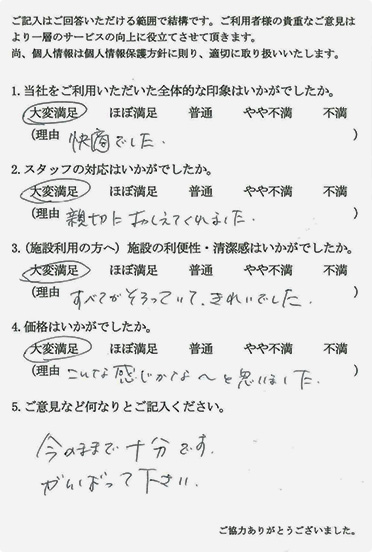 ご記入はご回答いただける範囲で結構です。ご利用者様の貴重なご意見は
より一層のサービスの向上に役立てさせて頂きます。
尚、個人情報は個人情報保護方針に則り、適切に取り扱いいたします。
1. 当社をご利用いただいた全体的な印象はいかがでしたか。
大変満足 ほぼ満足 普通 やや不満 不満
(理由 快適でした. )
2. スタッフの対応はいかがでしたか。
大変満足 ほぼ満足 普通 やや不満 不満
(理由 親切におしえてくれました. )
3. (施設利用の方へ) 施設の利便性・清潔感はいかがでしたか。
大変満足 ほぼ満足 普通 やや不満 不満
(理由 すべてがそろっていて、きれいでした. )
4. 価格はいかがでしたか。
大変満足 ほぼ満足 普通 やや不満 不満
(理由 こんな感じかな〜と思いました. )
5. ご意見など何なりとご記入ください。
今のままで十分です.
がんばって下さい.
ご協力ありがとうございました。